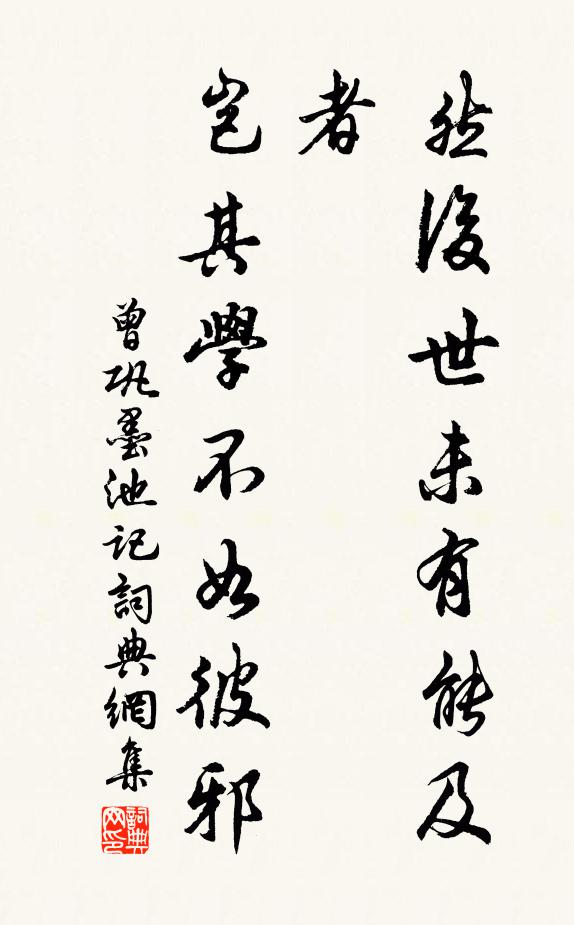 然後世未有能及
者
豈其學不如彼邪
曾鞏墨池記詞典網集
詞典
网印